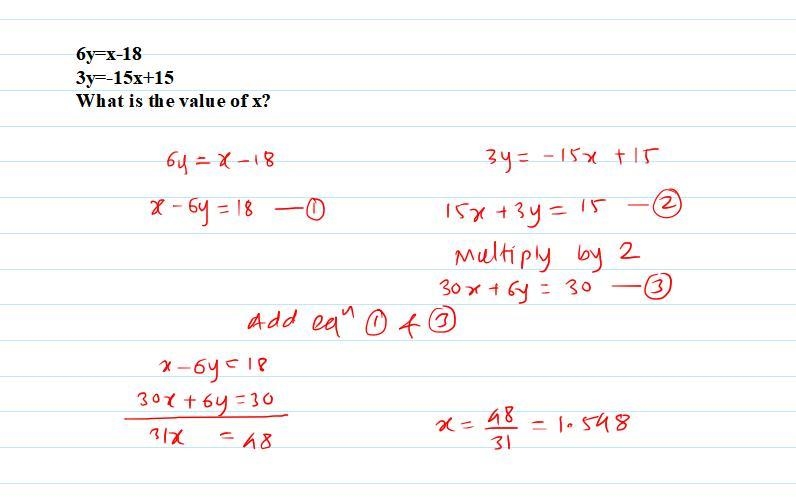 6y=x-18
3y=-15x+15
What is the value of x?
6y = x - 18
3y = -15x + 15
x - 6y = 18 — ①
15x + 3y = 15 — ②
Multiply by 2
30x + 6y = 30 — ③
Add eqⁿ ① & ③
x - 6y = 18
30x + 6y = 30
31x = 48
x = 48/31 = 1.548